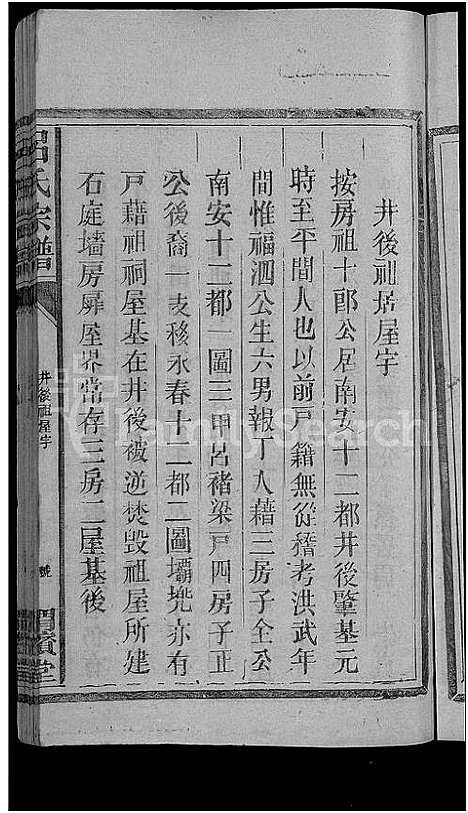 井後祖居屋宇
按房祖十郎公居南安十二都井後肇基元
時至平間人也以前戸籍無從稽考洪武年
間惟福泗公生六男報丁入藉三房子全公
南安十二都一圖三甲呂褚梁戸四房子正
公後裔一支移永春十二都二圖壩兠亦有
戸藉祖祠屋基在井後被逆焚毀祖屋所建
石庭墻房屏屋界當存三房二屋基後
呂氏宗譜
井後祖屋宇
號
渭濱堂
FamilySearch